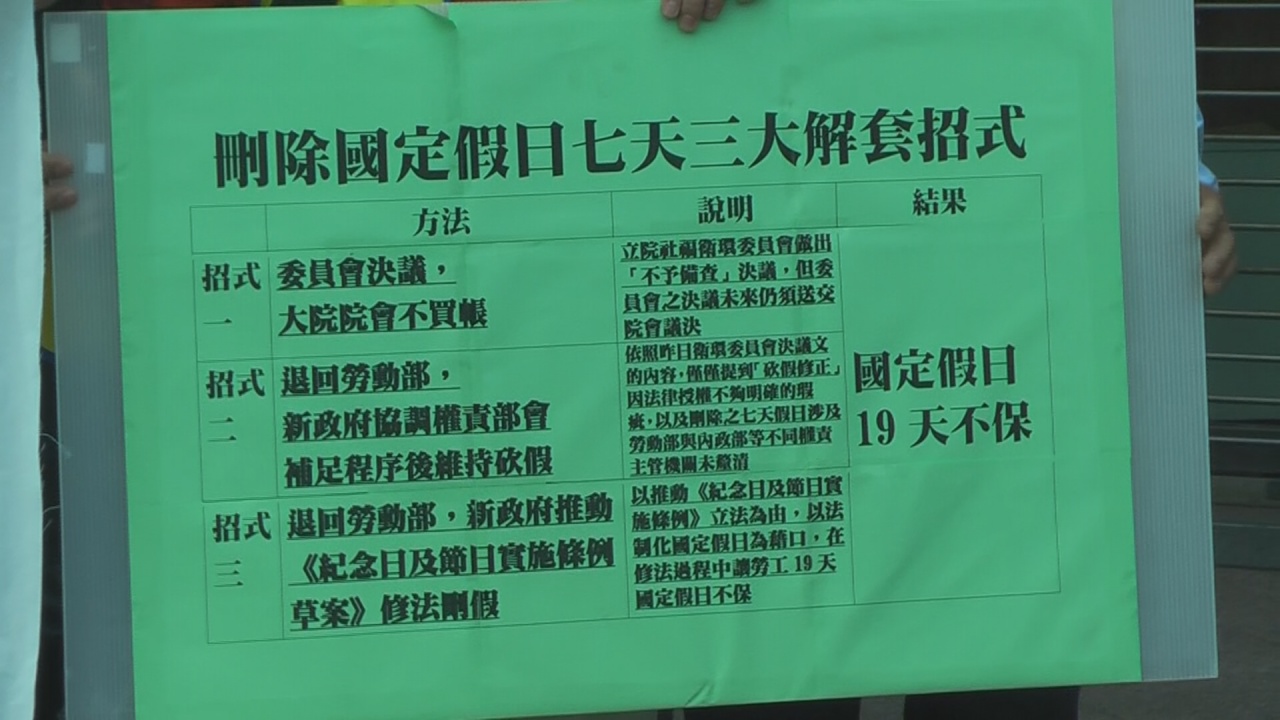 刪除國定假日七天三大解套招式
方法
說明
結果
招式
一
委員會決議，
大院院會不買帳
立院社福衛環委員會做出
「不予備查」決議，但委
員會之決議未來仍須送交
院會議決
招式
二
退回勞動部，
新政府協調權責部會
補足程序後維持砍假
依照昨日衛環委員會決議文
的內容，僅僅提到「砍假修正」
因法律授權不夠明確的瑕
疵，以及刪除之七天假日涉及
勞動部與內政部等不同權責
主管機關未釐清
招式
三
退回勞動部，新政府推動
《紀念日及節日實施條例
草案》修法刪假
以推動《紀念日及節日實
施條例》立法為由，以法
制化國定假日為藉口，在
修法過程中讓勞工19天
國定假日不保
國定假日
19 天不保